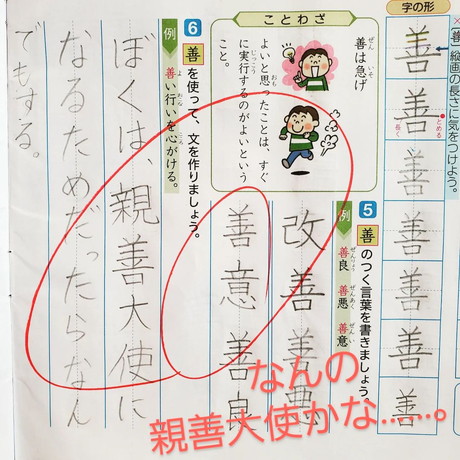 字の形
善
善
とめる
長く
善
善
善
善
善
縦画の長さに気をつけよう。
5 善のつく言葉を書きましょう。
例
善良 善悪 善意
ぜんりょう ぜんあく ぜんい
改善
善悪
善意
善良
ことわざ
善は急げ
ぜん いそ
よいと思ったことは、すぐ
に実行するのがよいという
こと。
6 善を使って、文を作りましょう。
例
善い行いを心がける。
ぼくは、親善大使に
なるためだったらなん
でもする。
なんの
親善大使かな……。